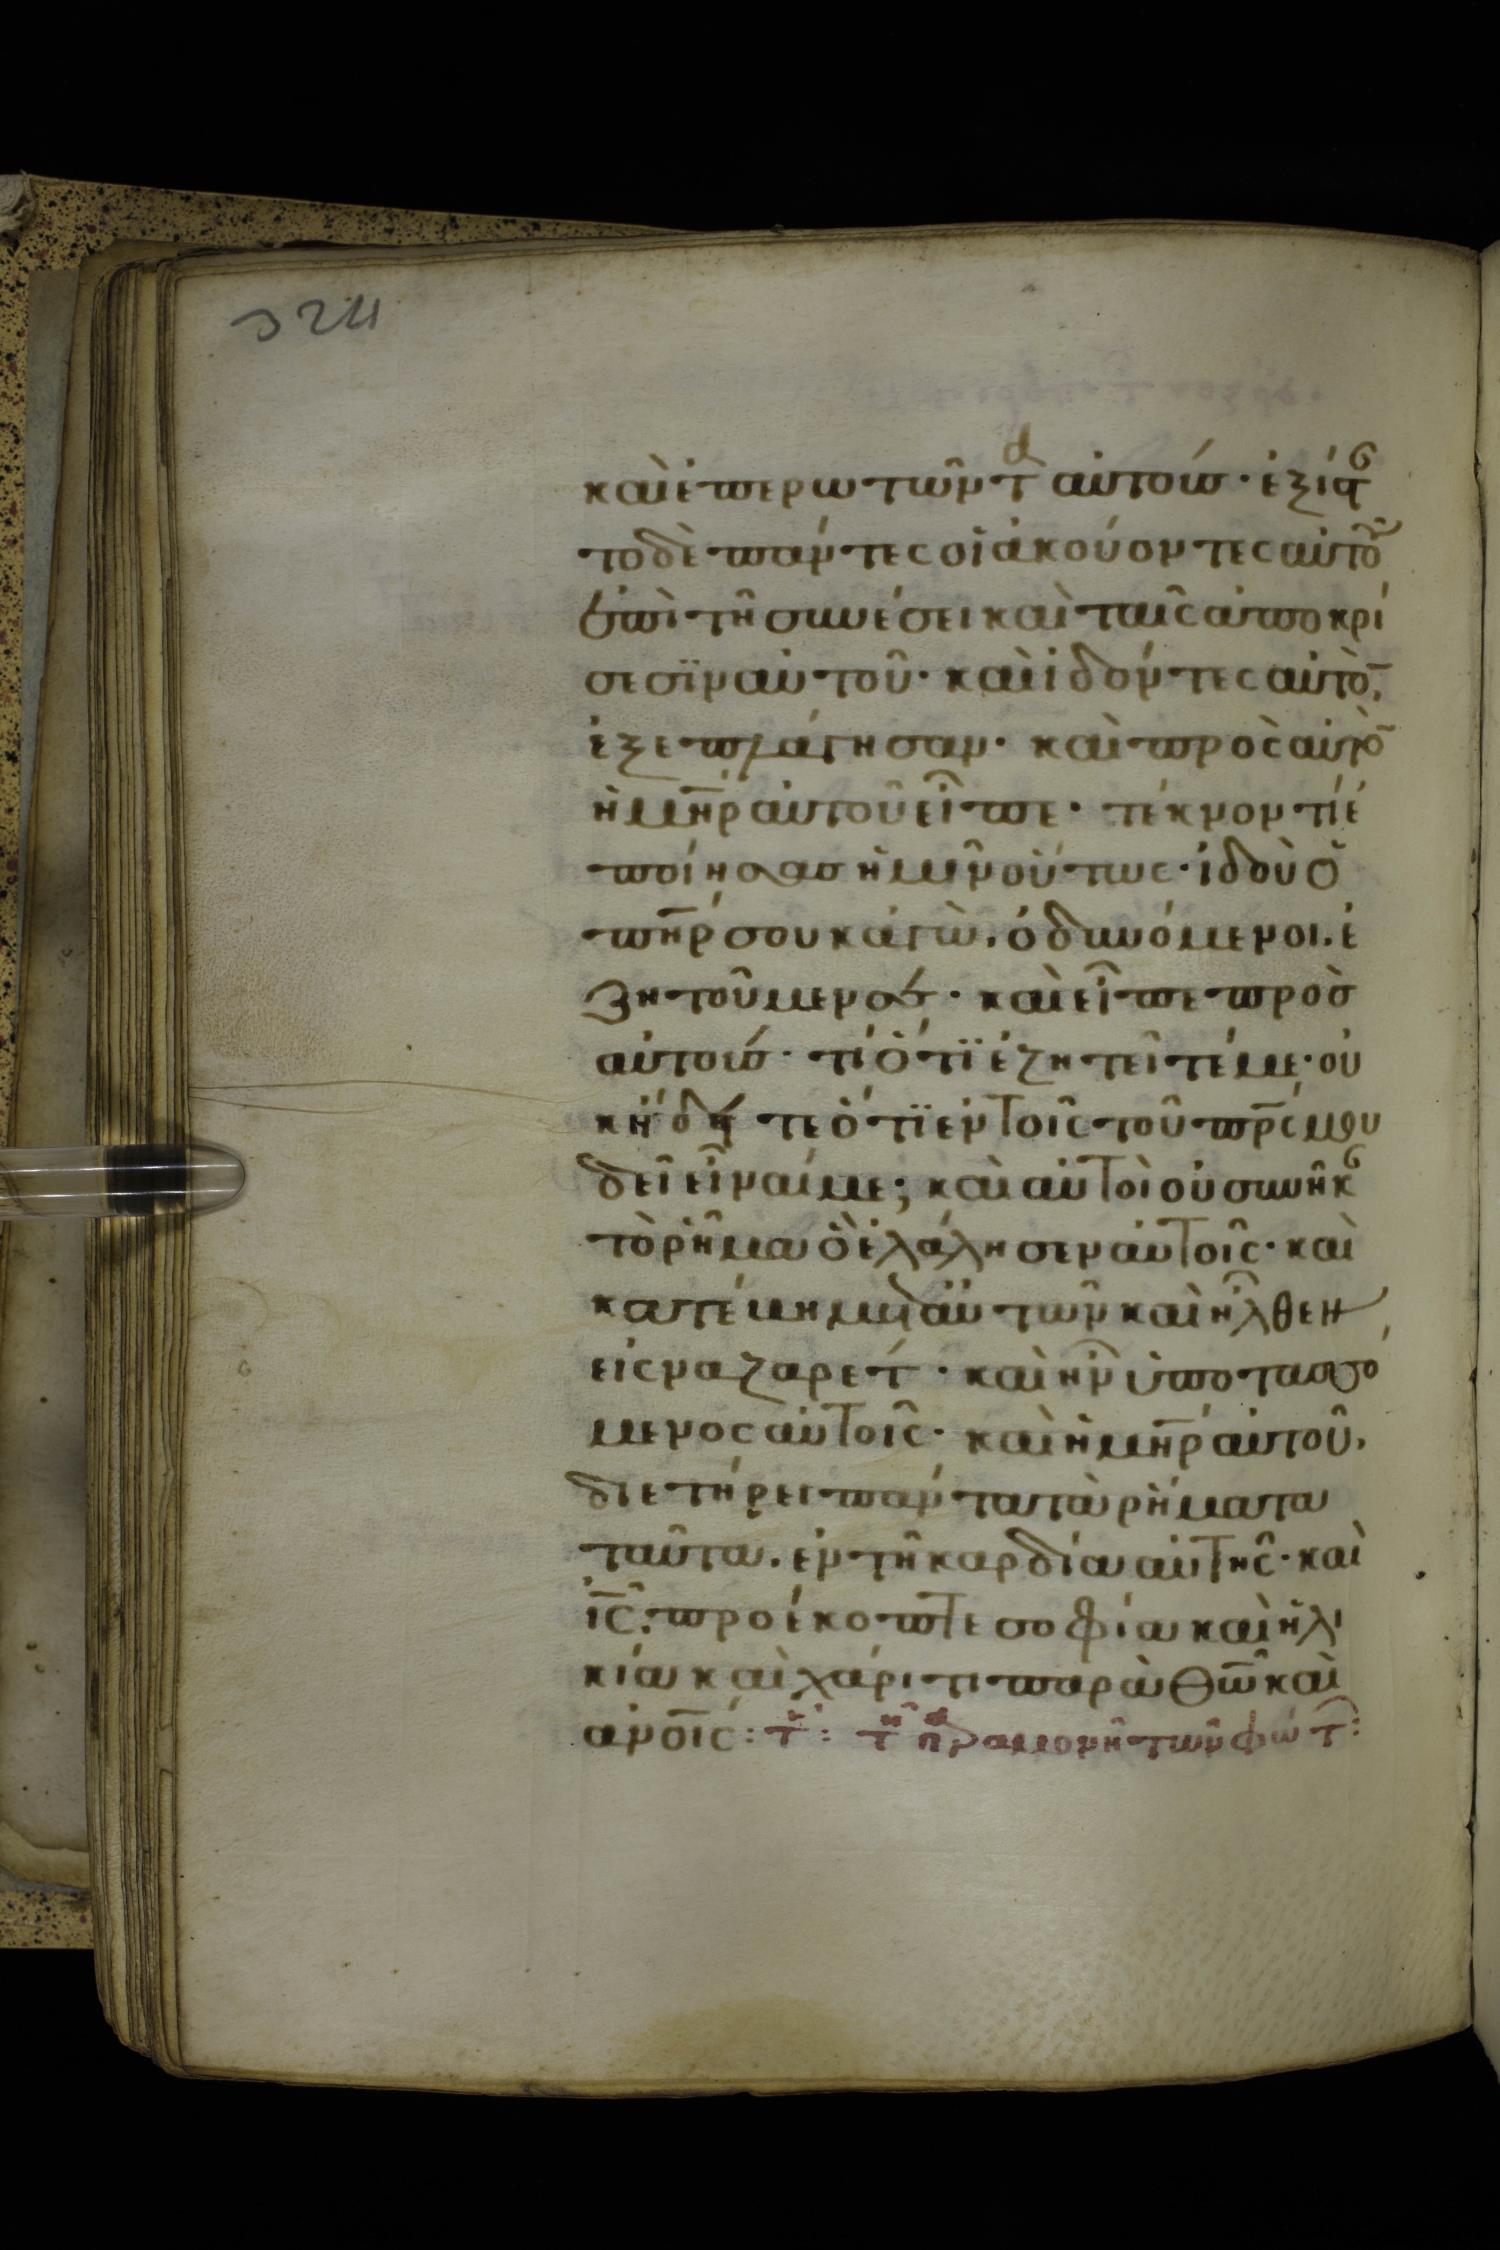 καὶ ἐπερωτῶντα αὐτούς· ἐξίσταν
το δὲ πάντες οἱ ἀκούοντες αὐτοῦ
ἐπὶ τῆ συνέσει καὶ ταῖς ἀποκρί
σεσϊν αὐτοῦ· καὶ ἰδόντες αὐτὸν,
ἐξεπλάγησαν· καὶ πρὸς αὐτὸν
ἡ μη̅ρ αὐτοῦ εἶπε· τέκνον τί ἐ
ποίησας ἡμῖν οὕτως· ἰδοὺ ὁ
πη̅ρ σου κἀγὼ, ὀδυνόμενοι, ἐ
ζητοῦμεν σέ· καὶ εἶπε πρὸς
αὐτούς· τί ὅτϊ ἐζητεῖτέ με· οὐ
κ ἤδητε ὅτϊ ἐν τοῖς τοῦ πρ̅ς μου
δεῖ εἶναί με; καὶ αὐτοὶ οὐ συνῆκαν
τὸ ῥῆμα ὃ ἐλάλησεν αὐτοῖς· καὶ
κατέβη μετ' αὐτῶν καὶ ἦλθεν
εἰς ναζαρέτ· καὶ ἦν ὑποτασσό
μενος αὐτοῖς· καὶ ἡ μη̅ρ αὐτοῦ,
διετήρει πάντα τὰ ῥήματα
ταῦτα, ἐν τῆ καρδία αὐτῆς· καὶ
ι̅ς, προέκοπτε σοφία καὶ ἡλι
κία καὶ χάριτι παρὰ θω̅ καὶ
ἀνο̅ις: τ: τῆ παραμονῆ τῶν φώτ: